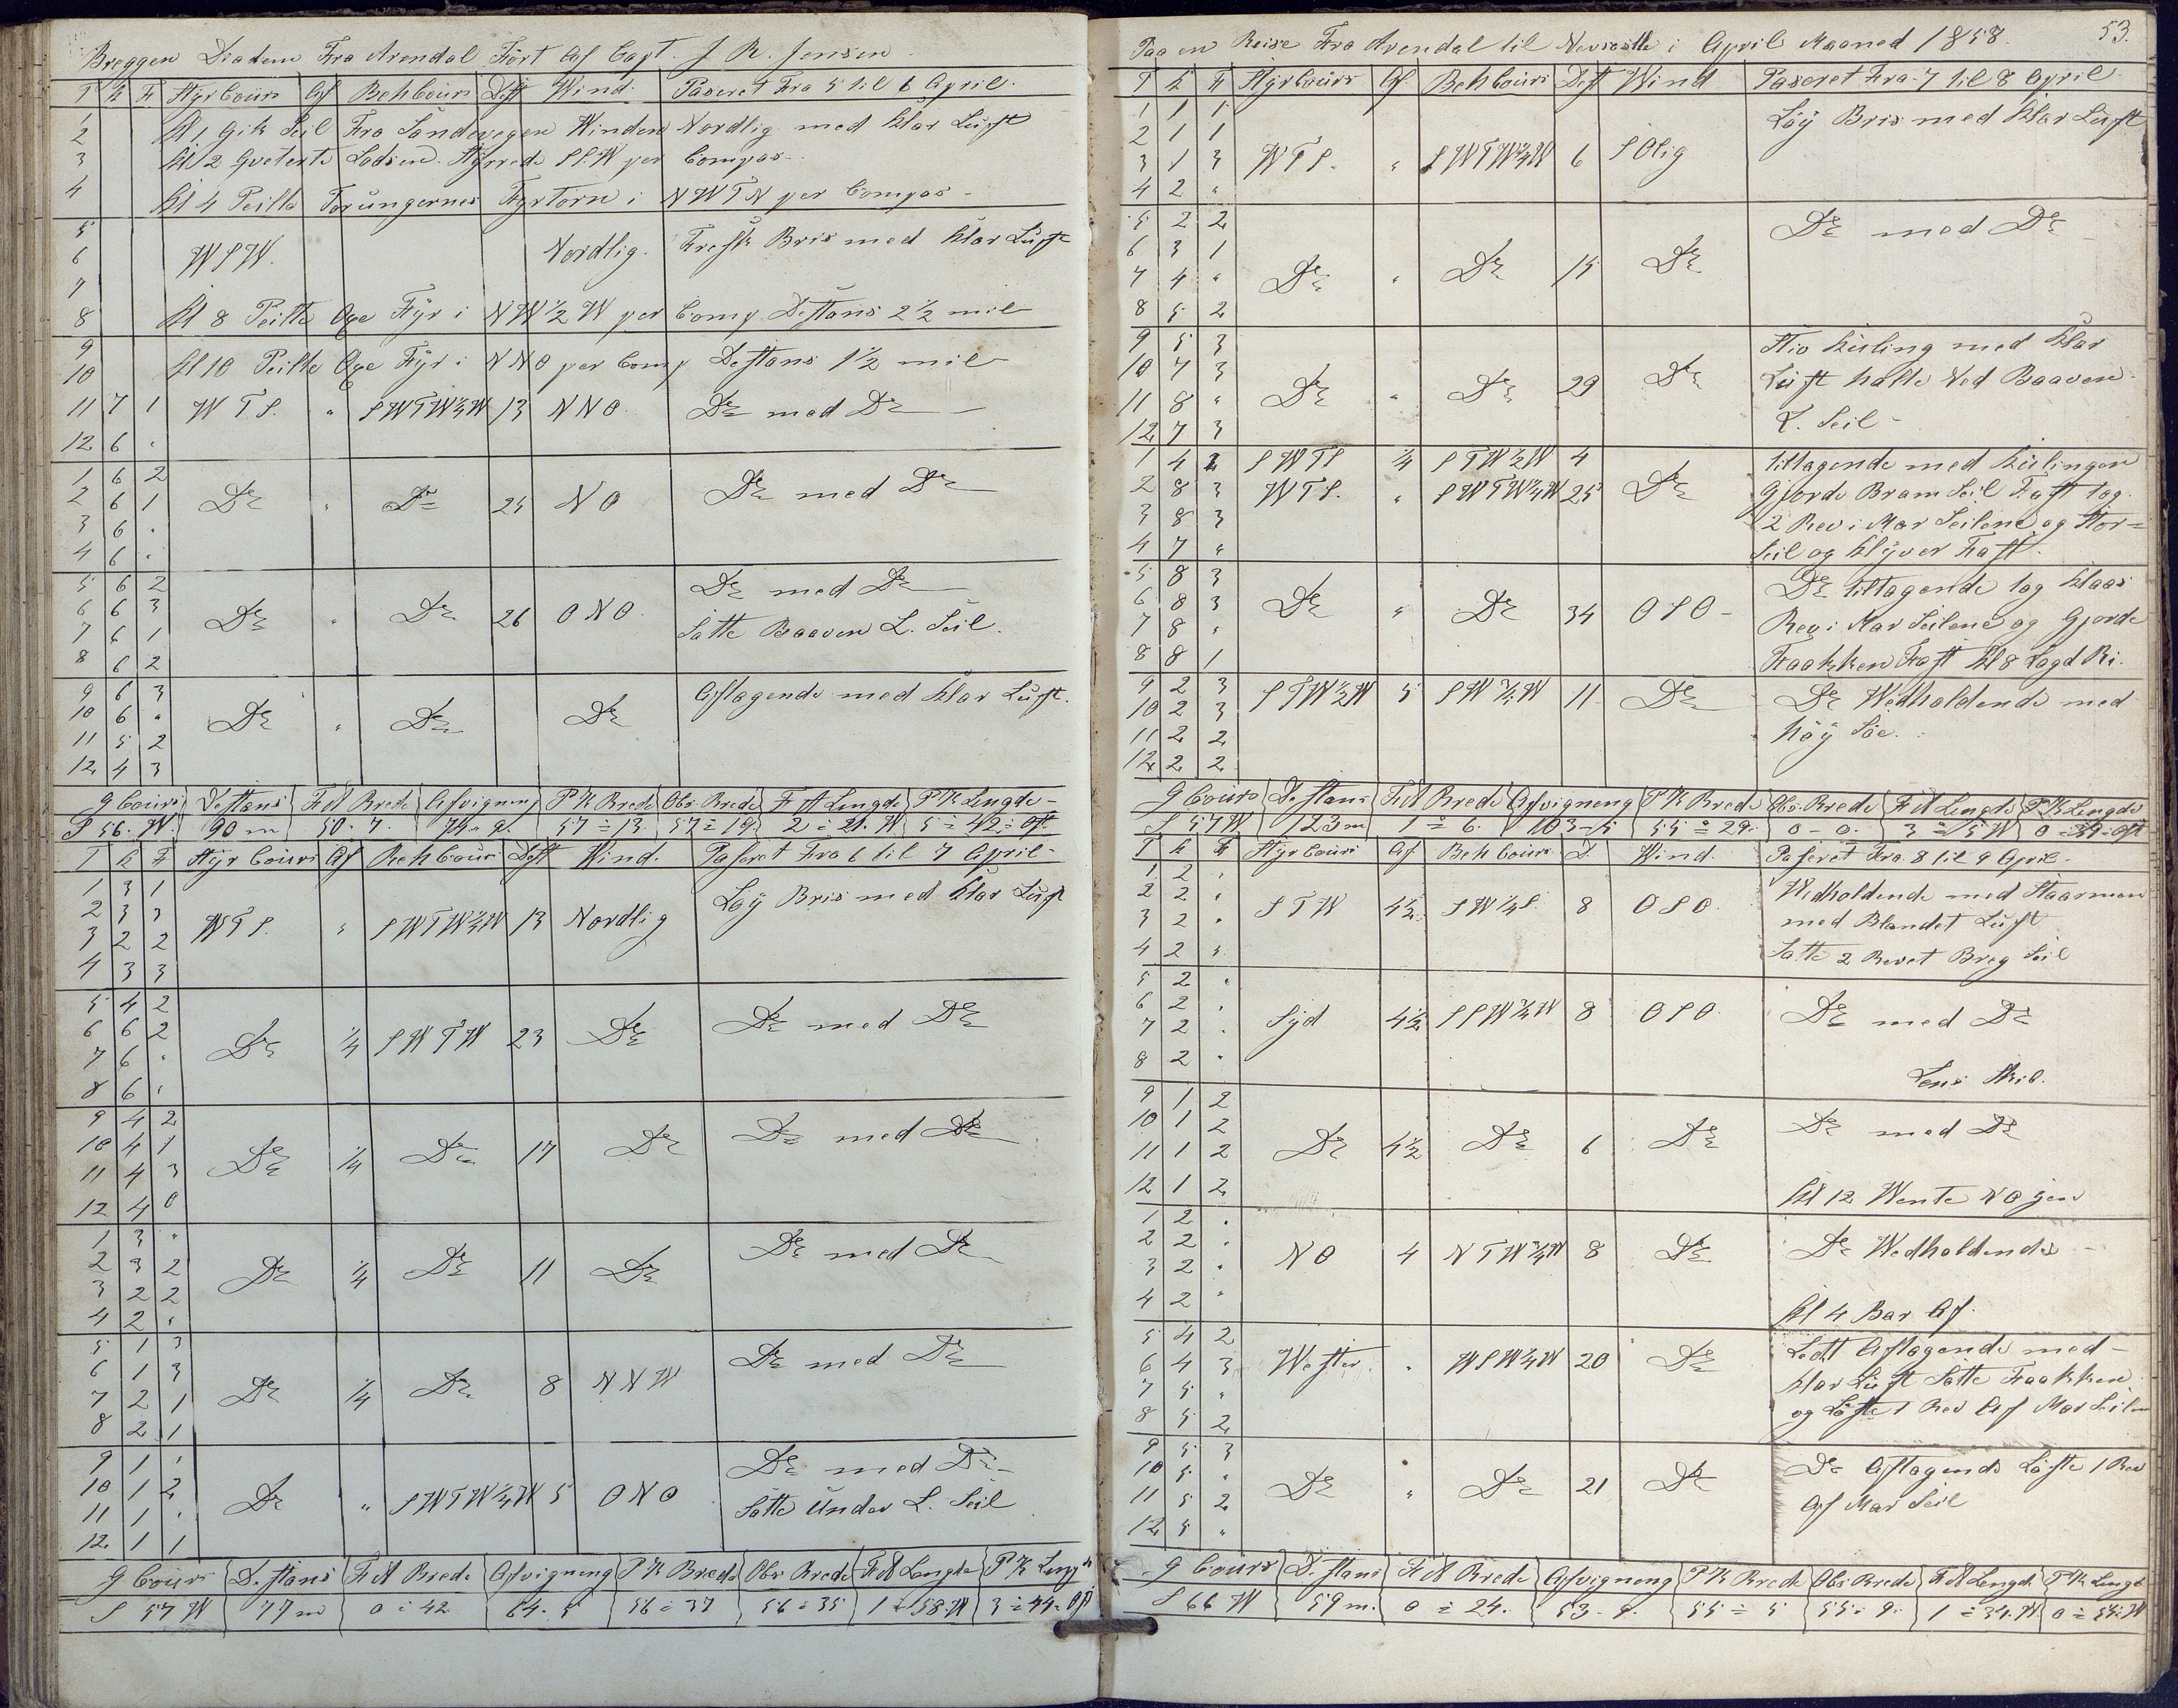 Breggen Diadem Fra Arendal Ført Af Capt. J. R. Jensen
T K F Styr Cours Af Beh Cours Dist Wind. Paseret Fra 5 til 6 April.
1
2 Kl 1 Gik Seil Fra Sandvigen Winden Nordlig med Klar Luft
3 Kl 2 Qveterte Lodsen. Styrrede SSW per Compas
4 Kl 4 Peilte Torungernes Fyrtorn i NWTN per Compas
5
6 WSW. Nordlig. Fresk Bris med Klar Luft
7
8 Kl 8 Peilte Oxe Fyr i NW ½ W per Comp Destans 2 ½ mil
9
10 Kl 10 Peilte Oxe Fyr i NNO per Comp Destans 1 ½ mil
11 7 1 WTS. " SWTW¼W 13 NNO. Do med Do
12 6 "
1 6 2
2 6 1 Do " Do 25 NO Do med Do
3 6 "
4 6 "
5 6 2 Do med Do
6 6 3 Do " Do 26 ONO. Satte Baaven L. Seil.
7 6 1
8 6 2
9 6 3 Aftagende med Klar Luft.
10 6 " Do " Do Do
11 5 2
12 4 3
G Cours Destans F A Brede Afvigning P K Brede Obs. Brede F A Lengde P K Lengde
S 56. W. 90 m 50. 7. 74. 9. 57 = 13. 57 = 19. 2 = 21. W 5 = 42 = Ost.
T K F Styr Cours Af Beh Cours Dist Wind. Paseret Fra 6 til 7 April
1 3 1 Løy Bris med Klar Luft
2 3 3 WTS. " SWTW¼W 13 Nordlig
3 2 2
4 3 3
5 4 2
6 6 2 Do ¼ SWTW 23 Do Do med Do
7 6 "
8 6 "
9 4 2
10 4 1 Do ¼ Do 17 Do Do med Do
11 4 3
12 4 0
1 3 "
2 3 2 Do ¼ Do 11 Do Do med Do
3 2 2
4 2 "
5 1 3
6 1 3 Do ¼ Do 8 NNW Do med Do
7 2 1
8 2 1
9 1 " Do med Do
10 1 2 Do " SWTW¼W 5 ONO Satte Under L. Seil
11 1 "
12 1 1
G Cours Destans F A Brede Afvigning P K Brede Obs Brede F A Lengde P K Lengde
S 57 W 77 m 0 = 42 64. 5 56 = 37 56 = 35 1 = 58. W 3 = 44 = Ost
Paa en Reise Fra Arendal til Newcastle i April Maaned 1858. 53.
T K F Styr Cours Af Beh Cours Dist Wind Paseret Fra 7 til 8 April
1 1 1 Løy Bris med Klar Luft
2 1 1
3 1 3 WTS. " SWTW¼W 6 SOlig
4 2 "
5 2 2 Do med Do
6 3 1
7 4 " Do " Do 15 Do
8 5 2
9 5 3 Stiv Kuling med Klar
10 7 3 Do " Do 29 Do Luft halte Ned Baaven
11 8 " L. Seil
12 7 3
1 4 2 SWTS ¼ STW½W 4 tiltagende med Kulingen
2 8 3 WTS. " SWTW¼W 25 Do Gjorde Bram Seil Fast tog
3 8 3 2 Rev i Mar Seilene og Stor=
4 7 " Seil og Klyver Fast.
5 8 3 Do tiltagende tog Klaas
6 8 3 Do " Do 34 OSO Rev i Mar Seilene og Gjorde
7 8 " Faakken Fast Kl 8 Lagd Bi.
8 8 1
9 2 3 STW½W 5 SW¾W 11 Do Do Wedholdende med
10 2 3 høy Søe.
11 2 2
12 2 2
G Cours Destans F A Brede Afvigning P K Brede Obs. Brede F A Lengde P K Lengde
S 57 W 123 m 1 = 6. 103 - 5 55 = 29. 0 - 0. 3 = 5 W 0 = 39 = Ost
T K F Styr Cours Af Beh Cours D. Wind. Paseret Fra 8 til 9 April
1 2 " Wedholdende med Staarmen
2 2 " STW 4½ SW¼S. 8 OSO. med Blandet Luft
3 2 " Satte 2 Revet Breg Seil
4 2 "
5 2 "
6 2 " Syd 4½ SSW¾W 8 OSO Do med Do
7 2 "
8 2 " Lens Skib.
9 1 2
10 1 2 Do 4½ Do 6 Do Do med Do
11 1 2
12 1 2 Kl 12 Wente NO gen
1 2 "
2 2 " NO 4 NTW¾W 8 Do Do Wedholdende
3 2 "
4 2 " Kl 4 Bar Af.
5 4 2 Ledt Aftagende med
6 4 3 Wester " WSW¼W 20 Do Klar Luft Satte Faakken
7 5 " og Løste 1 Rev Af Mar Seilene
8 5 2
9 5 3 Do Aftagende Løste 1 Rev
10 5 " Do " Do 21 Do Af Mar Seil
11 5 2
12 5 "
G Cours Destans F A Brede Afvigning P K Brede Obs Brede F A Lengde P K Lengde
S 66 W 59 m. 0 = 24. 53 - 9. 55 = 5 55 = 9. 1 = 34. W 0 = 55 = W